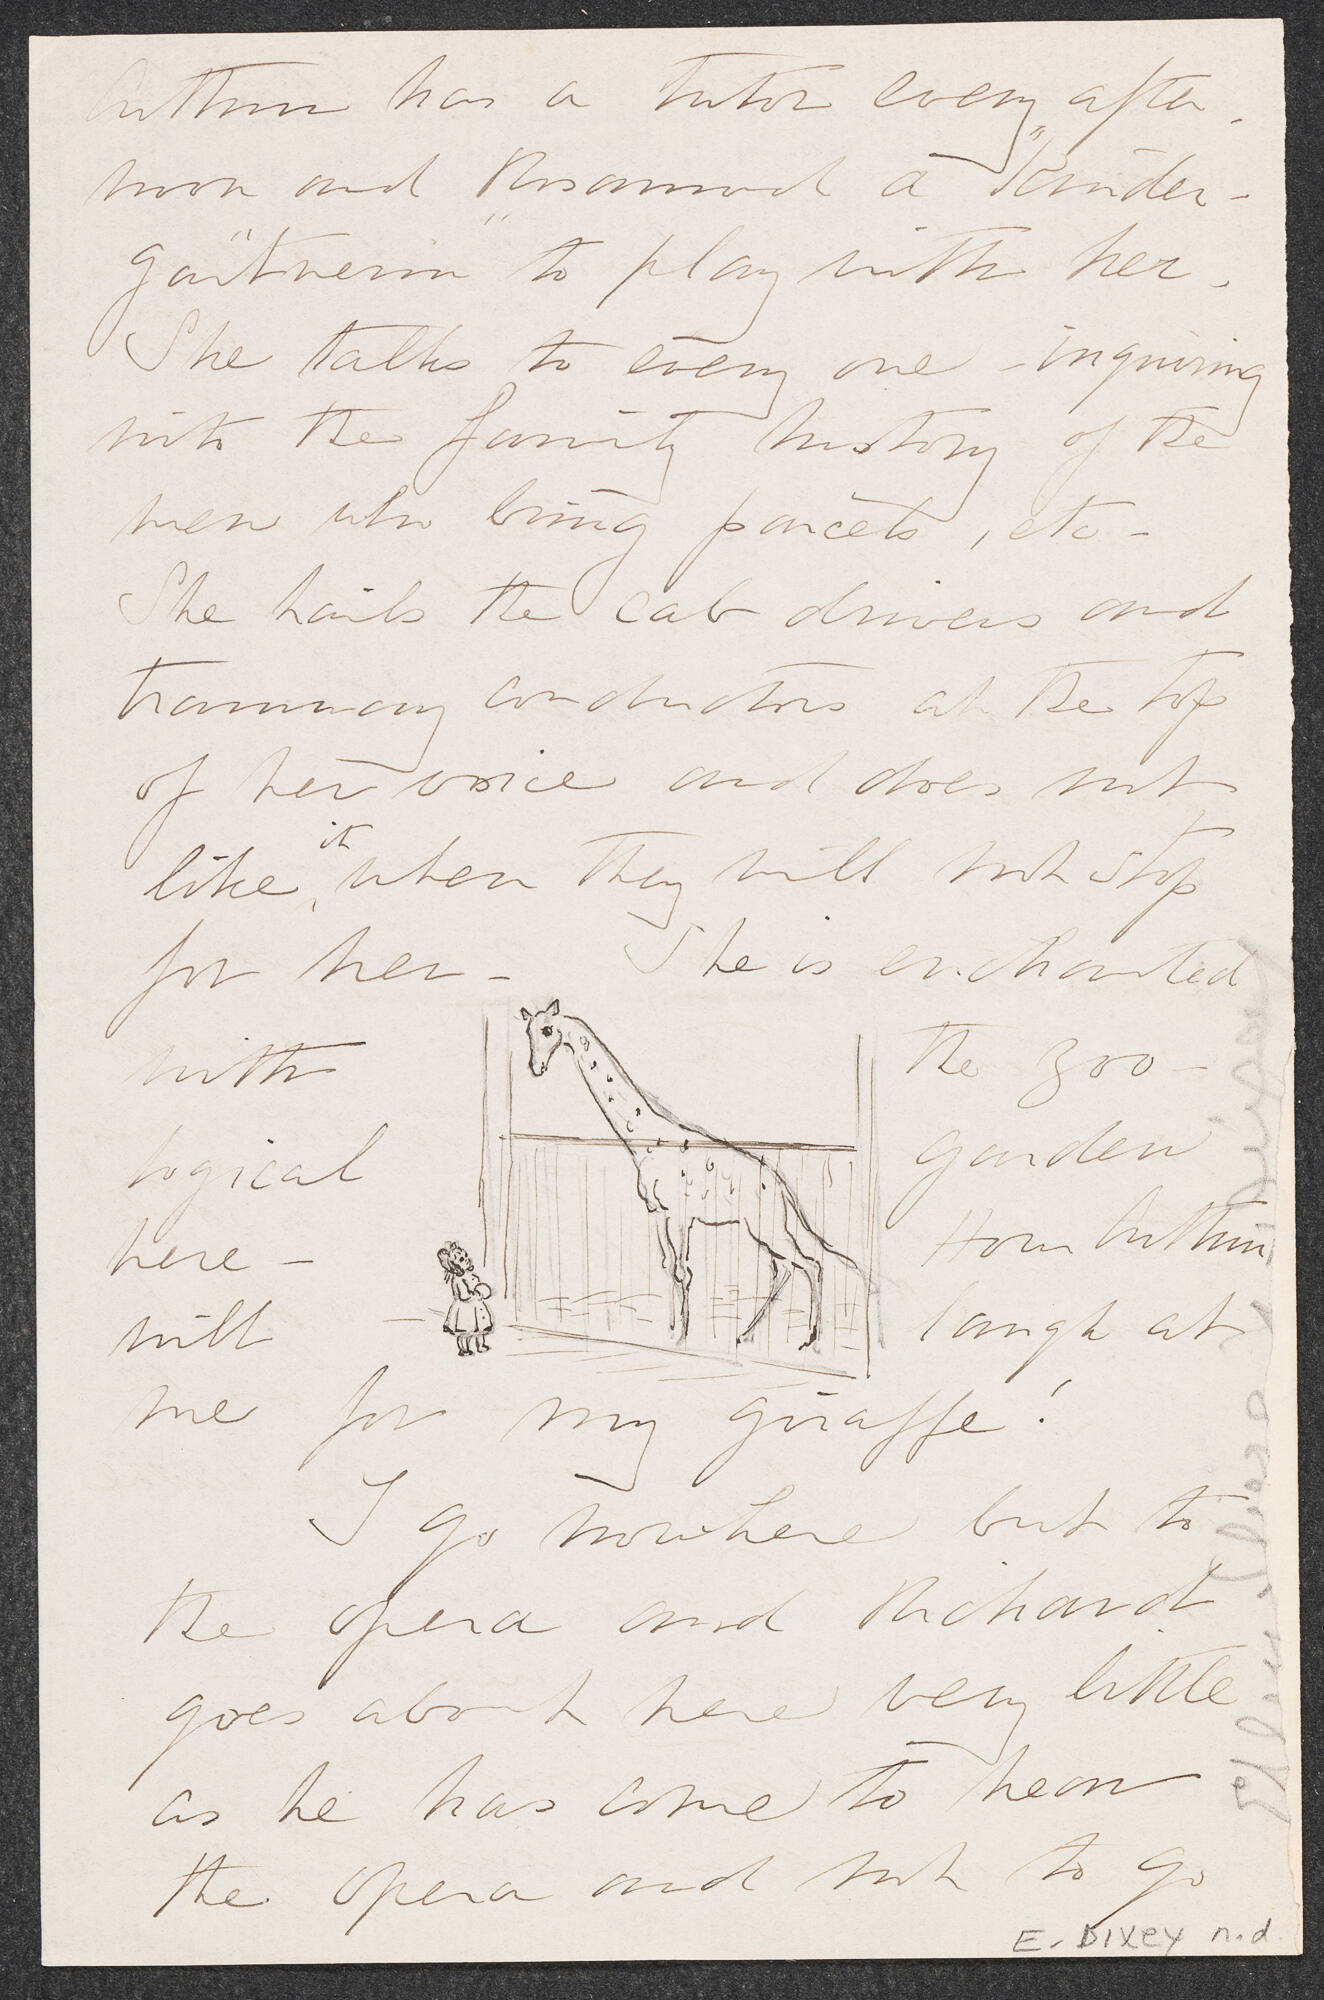 Arthur has a tutor every after-
noon and Rosamond a "Kinder-
gärtnerin" to play with her.
She talks to every one - inquiring
into the family history of the
men who bring parcels, etc -
She hails the cab drivers and
tramway conductors at the top
of her voice and does not
like it, when they will not stop
for her - She is enchanted
with the zoo-
logical garden
here - How Arthur
will laugh at
me for my giraffe!
I go nowhere but to
the opera and Richard
goes about here very little
as he has come to hear
the opera and not to go
E. Dixey n.d.